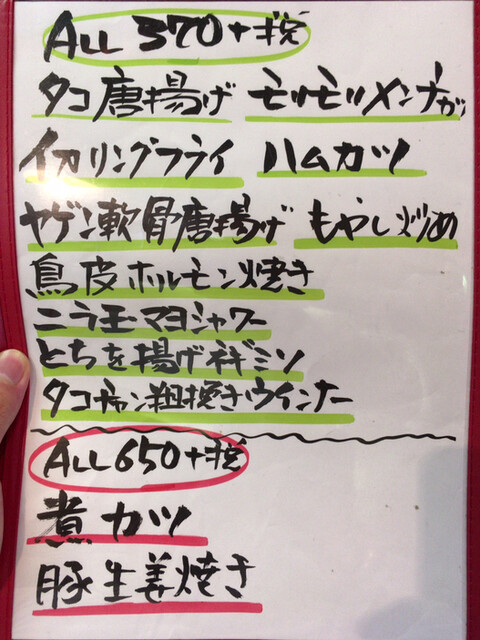 ALL 370+税
タコ唐揚げ モリモリメンチカツ
イカリングフライ ハムカツ
ヤゲン軟骨唐揚げ もやし炒め
鳥皮ホルモン焼き
ニラ玉マヨシャワー
とちを揚げネギミソ
タコチャン粗挽きウインナー
ALL 650+税
煮カツ
豚生姜焼き